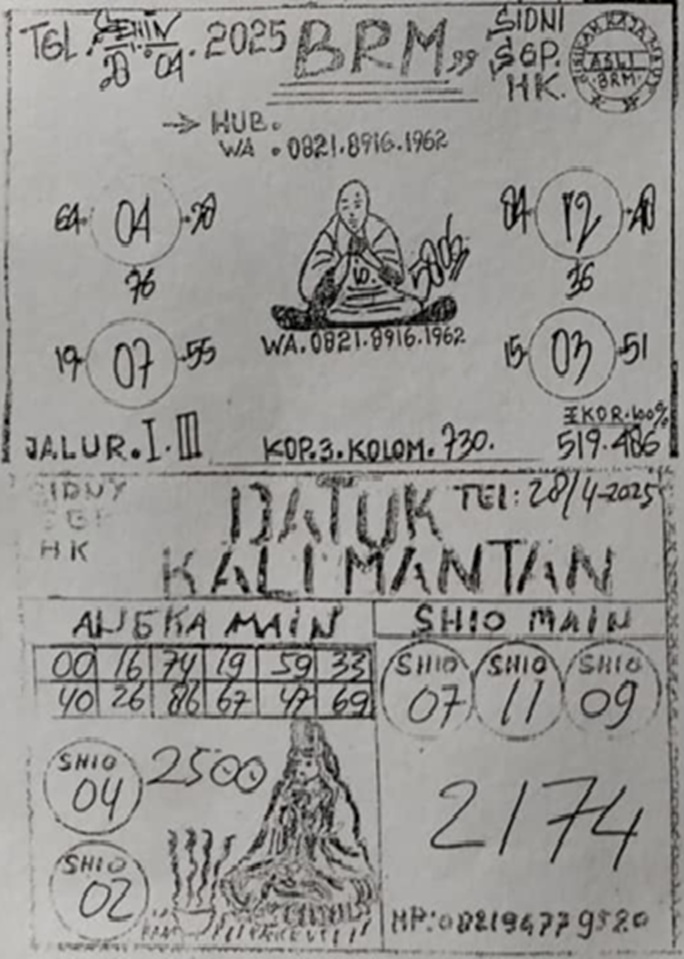 TGL. SENIN 28.04.2025
BRM,,
SIDNI
SGP.
HK.
ASLI
BRM
→ HUB.
WA. 0821.8916.1962
64. 04 .78
76
84. 12 .48
36
19. 07 .55
15. 03 .51
WA. 0821.8916.1962
EKOR. 100%
JALUR. I. III
KOP. 3. KOLOM. 730.
519.486
SIDNY
SGP
HK
TEl: 28/4-2025
DATUK
KALIMANTAN
ANGKA MAIN
00 16 74 19 59 33
40 26 86 67 47 69
SHIO MAIN
SHIO 07
SHIO 11
SHIO 09
SHIO 04
2500
SHIO 02
2174
HP: 082194779520